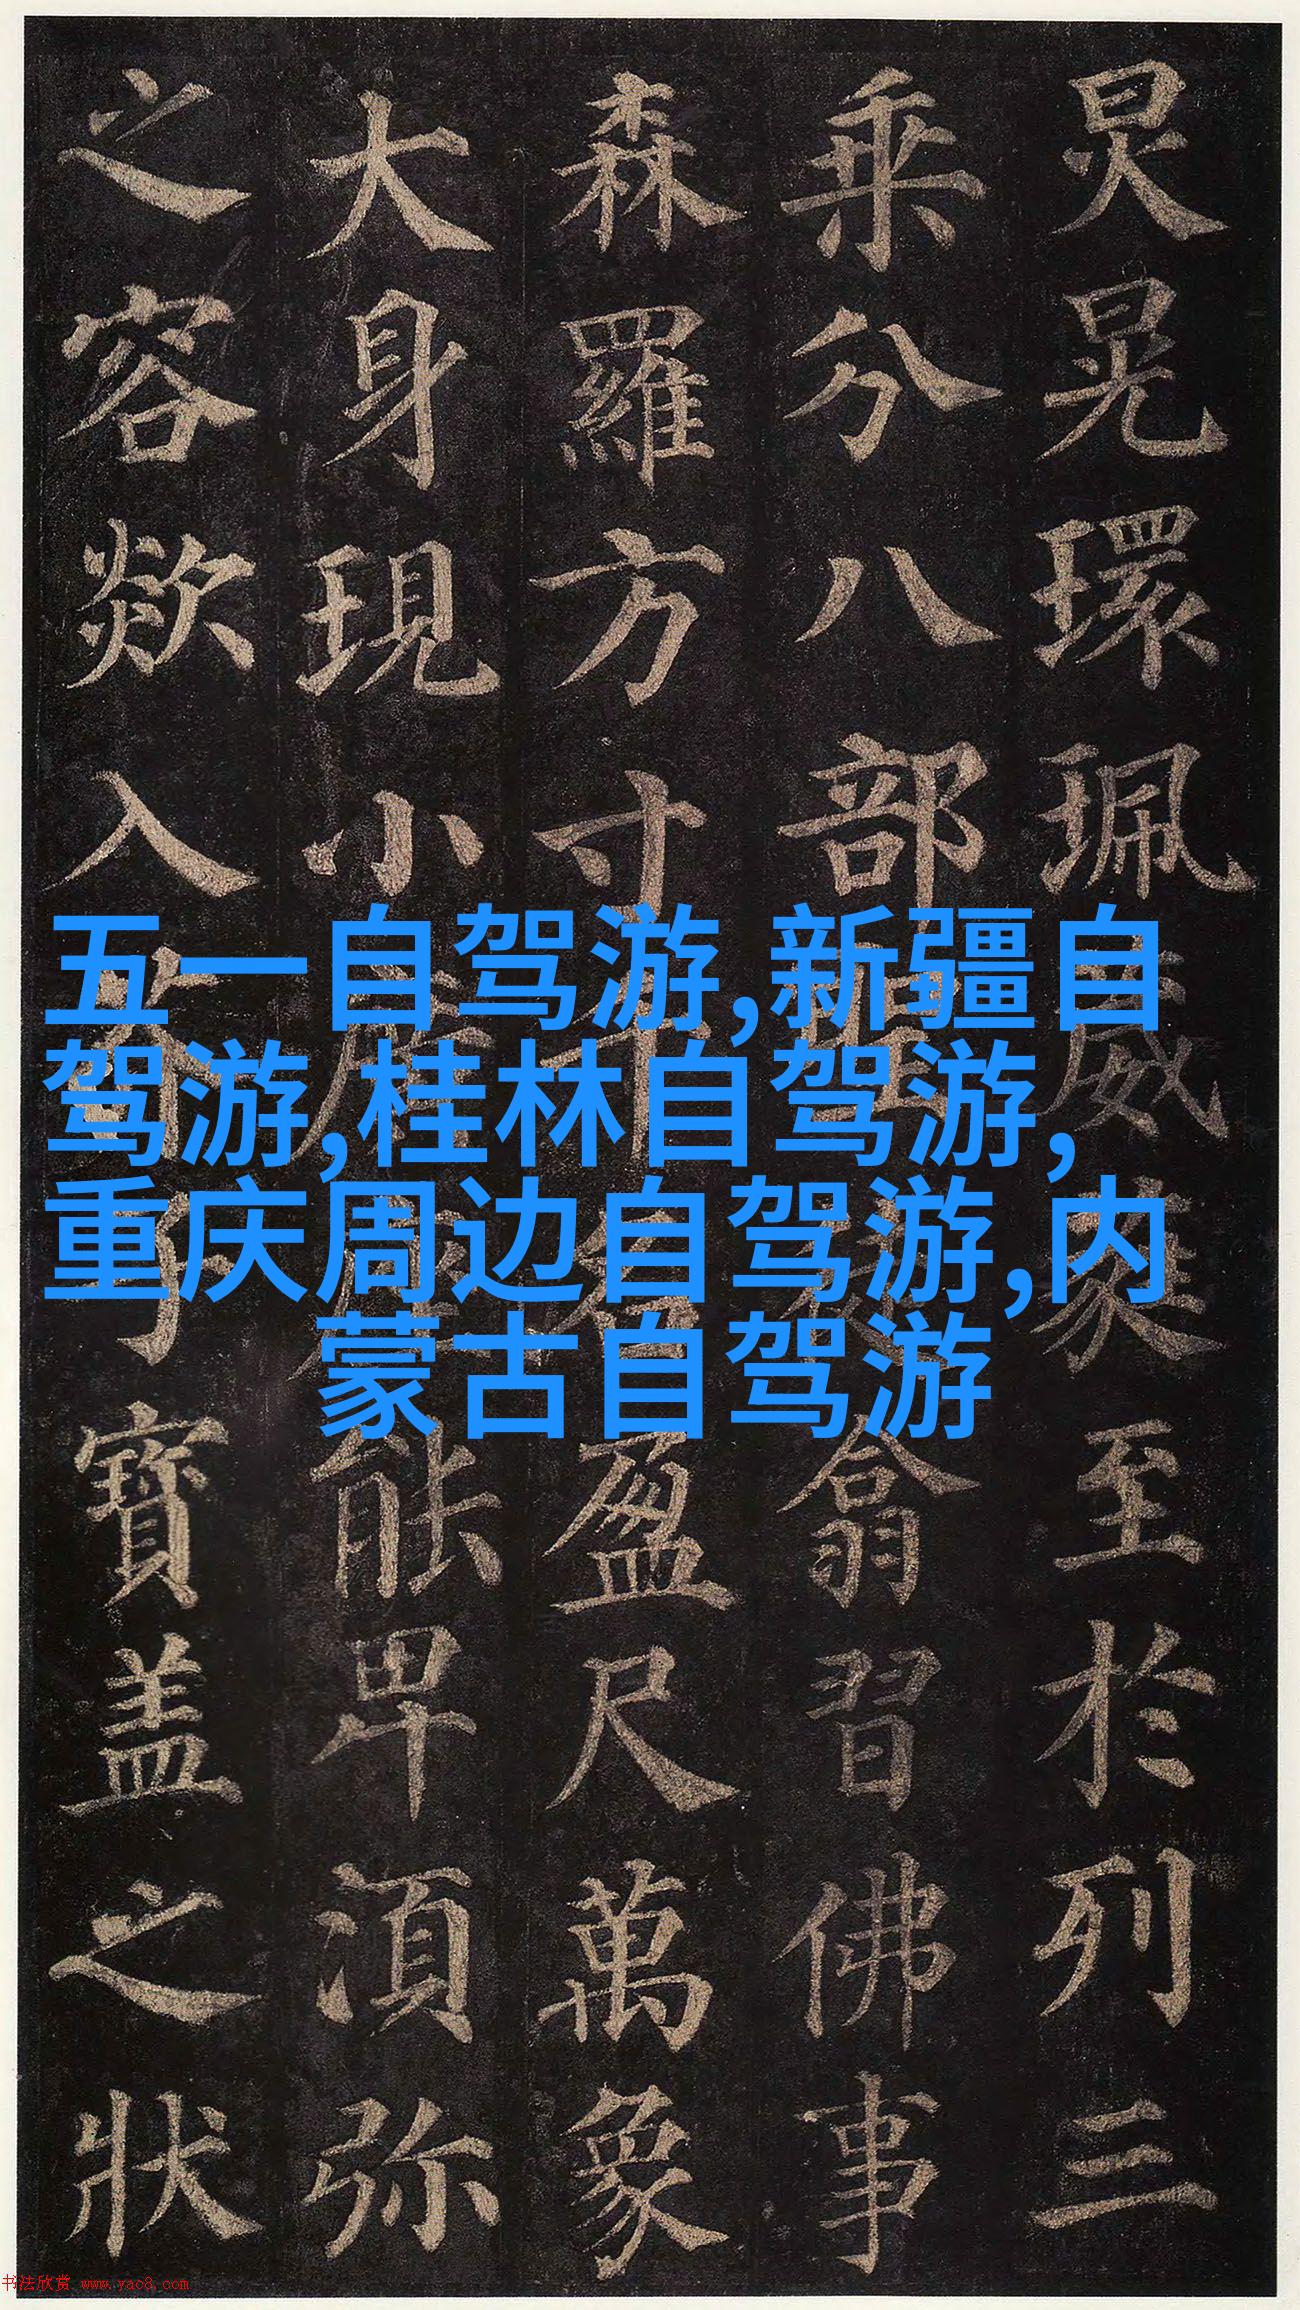 炅晃環珮葳蕤至於列三
乘分八部聖徒翕習佛事
森羅方寸千名盈尺萬象
大身現小廣座能卑湏弥
之容欻入芥子寶盖之狀
五一自驾游,新疆自
驾游,桂林自驾游,
重庆周边自驾游,内
蒙古自驾游
书法欣赏 www.yac8.com